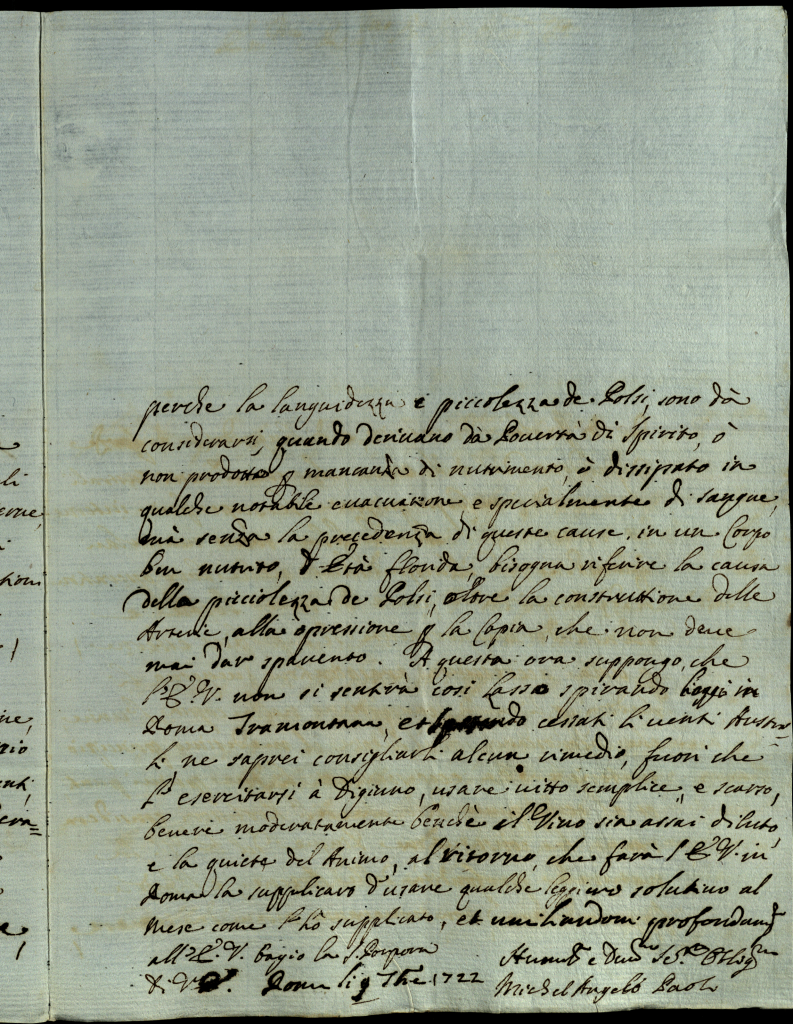 perche la languidezza e piccolezza de Polsi, sono dà
considerarsi, quando derivano dà Povertà di Spirito, ò
non prodotto p mancanza di nutrimento, ò dissipato in
qualche notabile evacuazione e specialmente di sangue,
mà senza la precedenza di queste cause, in un Corpo
ben nutrito, d'Età florida, bisogna riferire la causa
della picciolezza de Polsi, oltre la construttione delle
Arterie, alla opressione p la Copia, che non deve
mai dar spavento. A questa ora suppongo, che
l'E.V. non si sentirà così lasso spirando hoggi in
Roma Tramontana, et cessati li venti Austra=
li, ne saprei consigliarli alcun rimedio, fuori che
l'esercitarsi à Digiuno, usare vitto semplice, e scarso,
bevere moderatamente benchè il Vino sia assai diluto,
e la quiete del Animo, al ritorno, che farà l'E.V. in
Roma la supplicarò d'usare qualche leggiero solutivo al
Mese come l'hò supplicato, et umiliandomi profondam.
all'E.V. bagio la S. Porpora
Di V.E. Roma li 9 7bre 1722
Humil. e Dev. Se. Oblig.
Michel Angelo Paoli